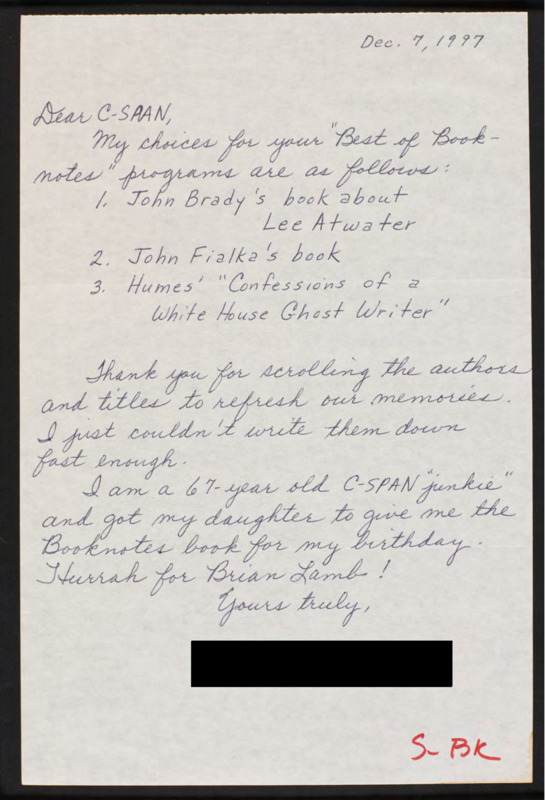 Dec. 7, 1997
Dear C-SPAN,
My choices for your "Best of Book-
notes" programs are as follows:
1. John Brady's book about
Lee Atwater
2. John Fialka's book
3. Humes' "Confessions of a
White House Ghost Writer"
Thank you for scrolling the authors
and titles to refresh our memories.
I just couldn't write them down
fast enough.
I am a 67-year old C-SPAN "junkie"
and got my daughter to give me the
Booknotes book for my birthday.
Hurrah for Brian Lamb!
Yours truly,
S- BK